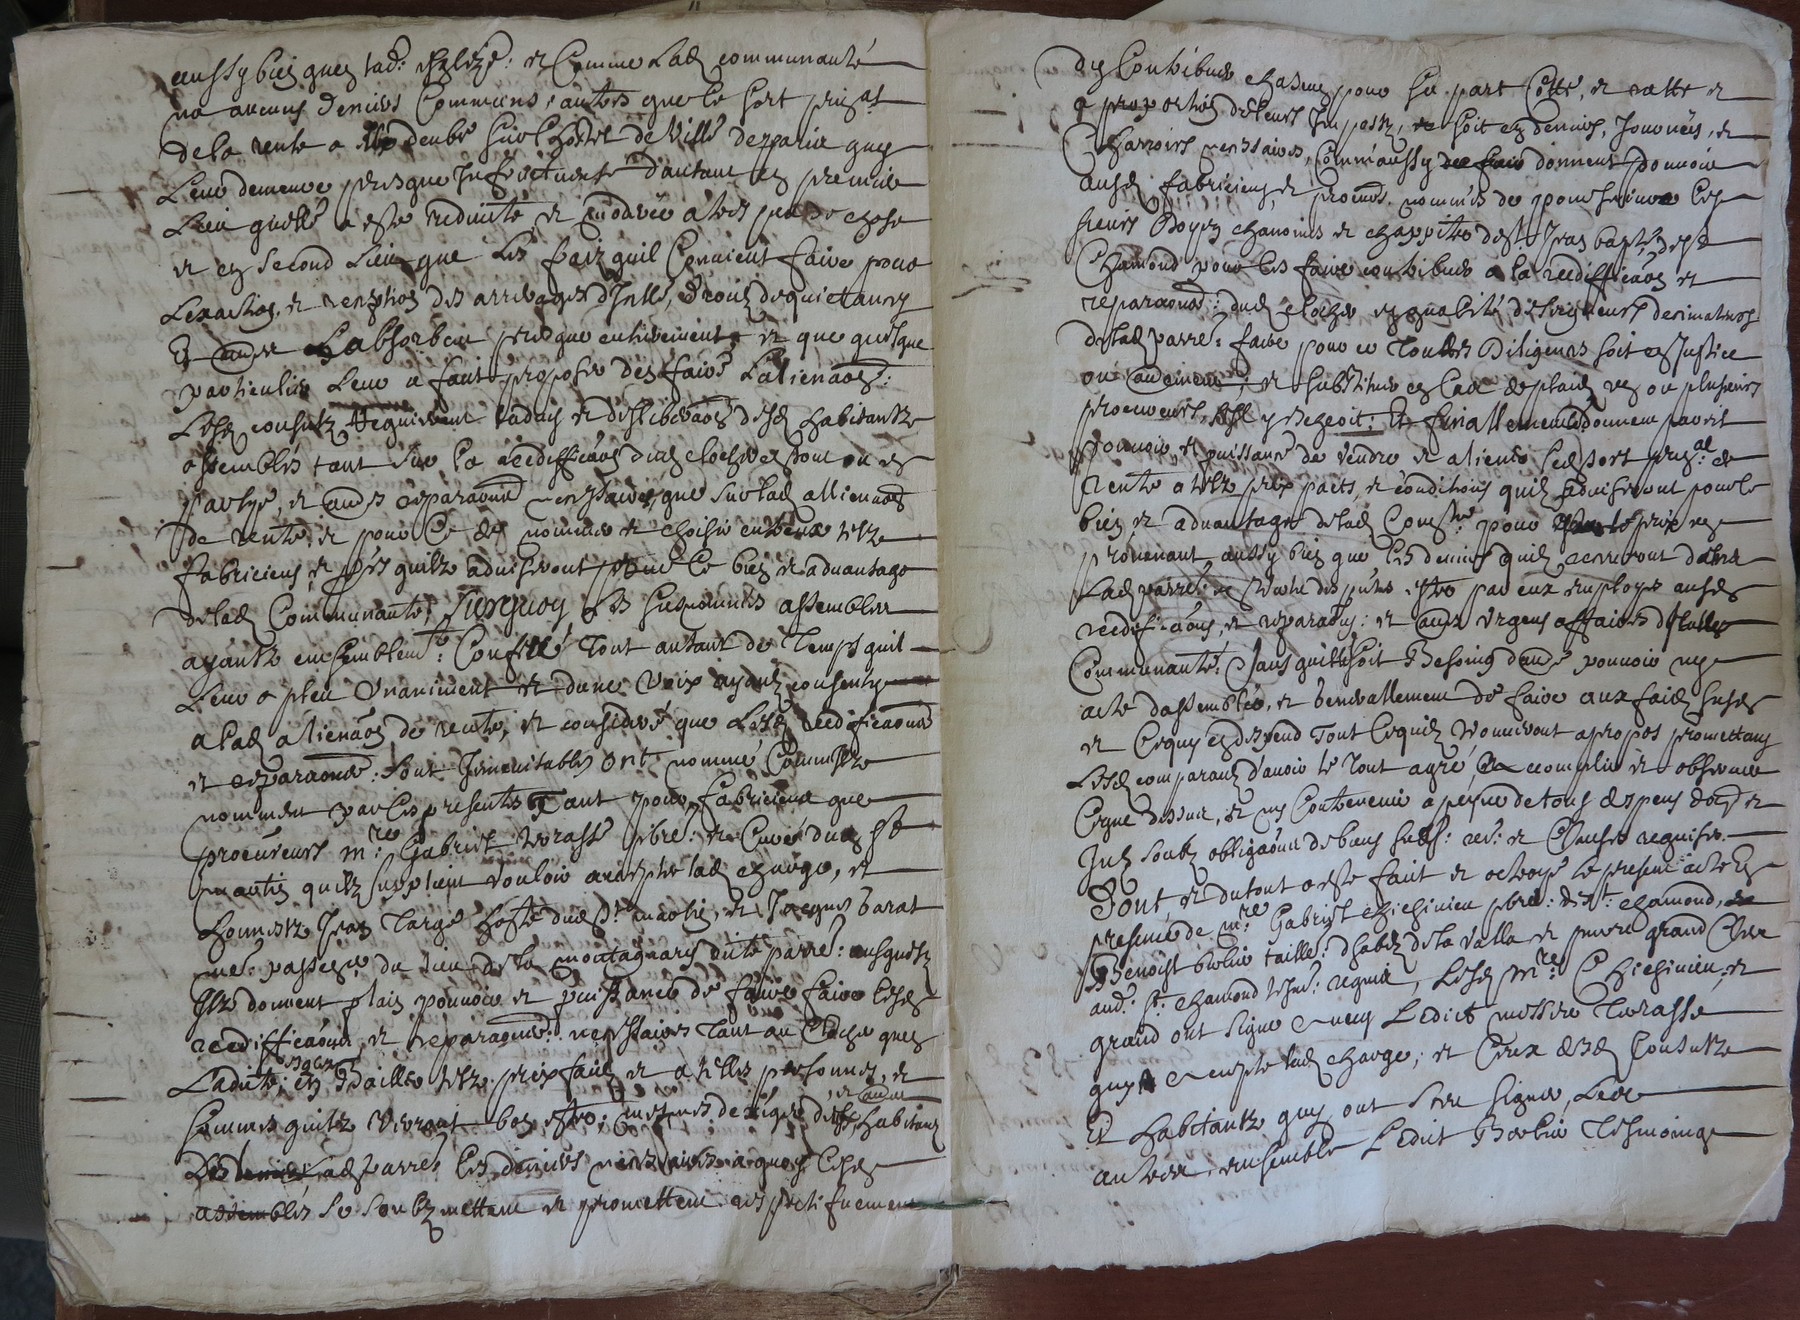 aussy bien quen lad: esglize: et Comme Lad communauté
na aucuns deniers Communs, autres que le sort prinal
de la rente a elle deube sur Lhostel de Ville de paris quy
Leur demeure presque Infructueuse dautant en premier
Lieu quelle a esté reduitte et moderée a tres peu de chose
et en second Lieu que Les fraiz quil Convient faire pour
Lexaction et reception des arrerages dIcelle, droit de quictances
Et autres Labsorbent presque entierement et que quelque
particulier Leur a faict proposer den faire Lalienaon:
Lesd consulz requierent ladvis et desliberaon desd habitantz
assemblés tant sur la reediffieaon dud clocher en tout ou en
partye, et autres reparaons necessaires que sur lad allienaon
de rente, et pour Ce de nommer et choisir entre eux telz
fabriciens et quilz adviseront pour le bien et advantage
de lad Communauté, Surquoy Les susnommés assembles
ayantz ensemblemt: Conferé Tout autant de Temps quil
Leur a pleu Unaniment et dune Voix ayantz consenty
a lad alienaon de rente, et consideré que Lesd reedificaons
et reparaons: sont Inevitables ont nommé Comme
nomment par les presentes Tant pour fabriciens que
procureurs mre: Gabriel Terrasse pbre: et Curé dud St
martin quilz supplient vouloir accepter lad charge, et
honnestz Jean Targe hoste dud St martin, et Jacques barat
me: passem du lieu de la montagnaris dite parre: ausquelz
Ilz donnent plain pouvoir et puissance de faire faire lesd
reedifficaons et reparaons: necessaires Tant au Clocher quen
Ladite, en Bailler telz prixfaicz et a telles personnes, et
Comme quilz Verront bon estre, mesmes dexiger desd habitans
et autres
de lad parre: les deniers necessaires a quoy lesd
assemblés se soubzmettent et promettent respectifvement
dy Contribuer chascun pour sa part Cotte, et ratte et
a proportion de leurs Impostz, soit en deniers, Journées, et
Charroirs necessaires, Comme aussy donnent pouvoir
ausd fabriciens, et procurs: nommés de poursuivre les
sieurs Doyen chanoines et chappitre de St Jean baptiste de St
Chamond pour les faire contribuer a la reedifficaon et
reparaons: dud clocher en qualité de seigneurs decimateurs
de lad parre: faire pour ce Toutes Diligences soit en Justice
ou autrement, et substituer en Cas de plaid un ou plusieurs
procureurs, sil y eschoit: Et finallement donnent pareil
pouvoir et puissance de vendre et aliener led sort prinal de
rente a telz prix pacts, et conditions quilz adviseront pour le
bien et advantage de lad Comte: pour le prix en
provenant aussy bien que les deniers quilz recevront dans
Lad parre: estre par eux employes ausd
reedificaons, et reparaons: et autres Urgens affaires de ladite
Communauté: sans quil soit Besoing dautre pouvoir ny
acte dassemblée, et generallement de faire aux faictz susd
et Ce quy en despend Tout Ce quilz trouveront a propos promettans
Lesd comparantz davoir le Tout agreé, accomplir et observer
Ce que dessus, et ny Contrevenir a peyne de tous despens domges et
Intz soubz obligaons de biens subms: rens: et Clauses requises.
Dont, et du tout a esté fait et octroyé le present acte En
presence de mre: Gabriel Chichivieu pbre: de St: chamond,
Benoist Berlier taille: dhabitz de la Valla et pierre grand Clerc
aud: St: chamond tesms: requis, Lesd Mre: Chichivieu, et
grand ont signe avec Ledict messire Terrasse
quy a accepte lad charge; et Ceux desd Consulz
Et habitantz quy ont sceu signer, Les
autres ensemble Ledict Berlier tesmoing